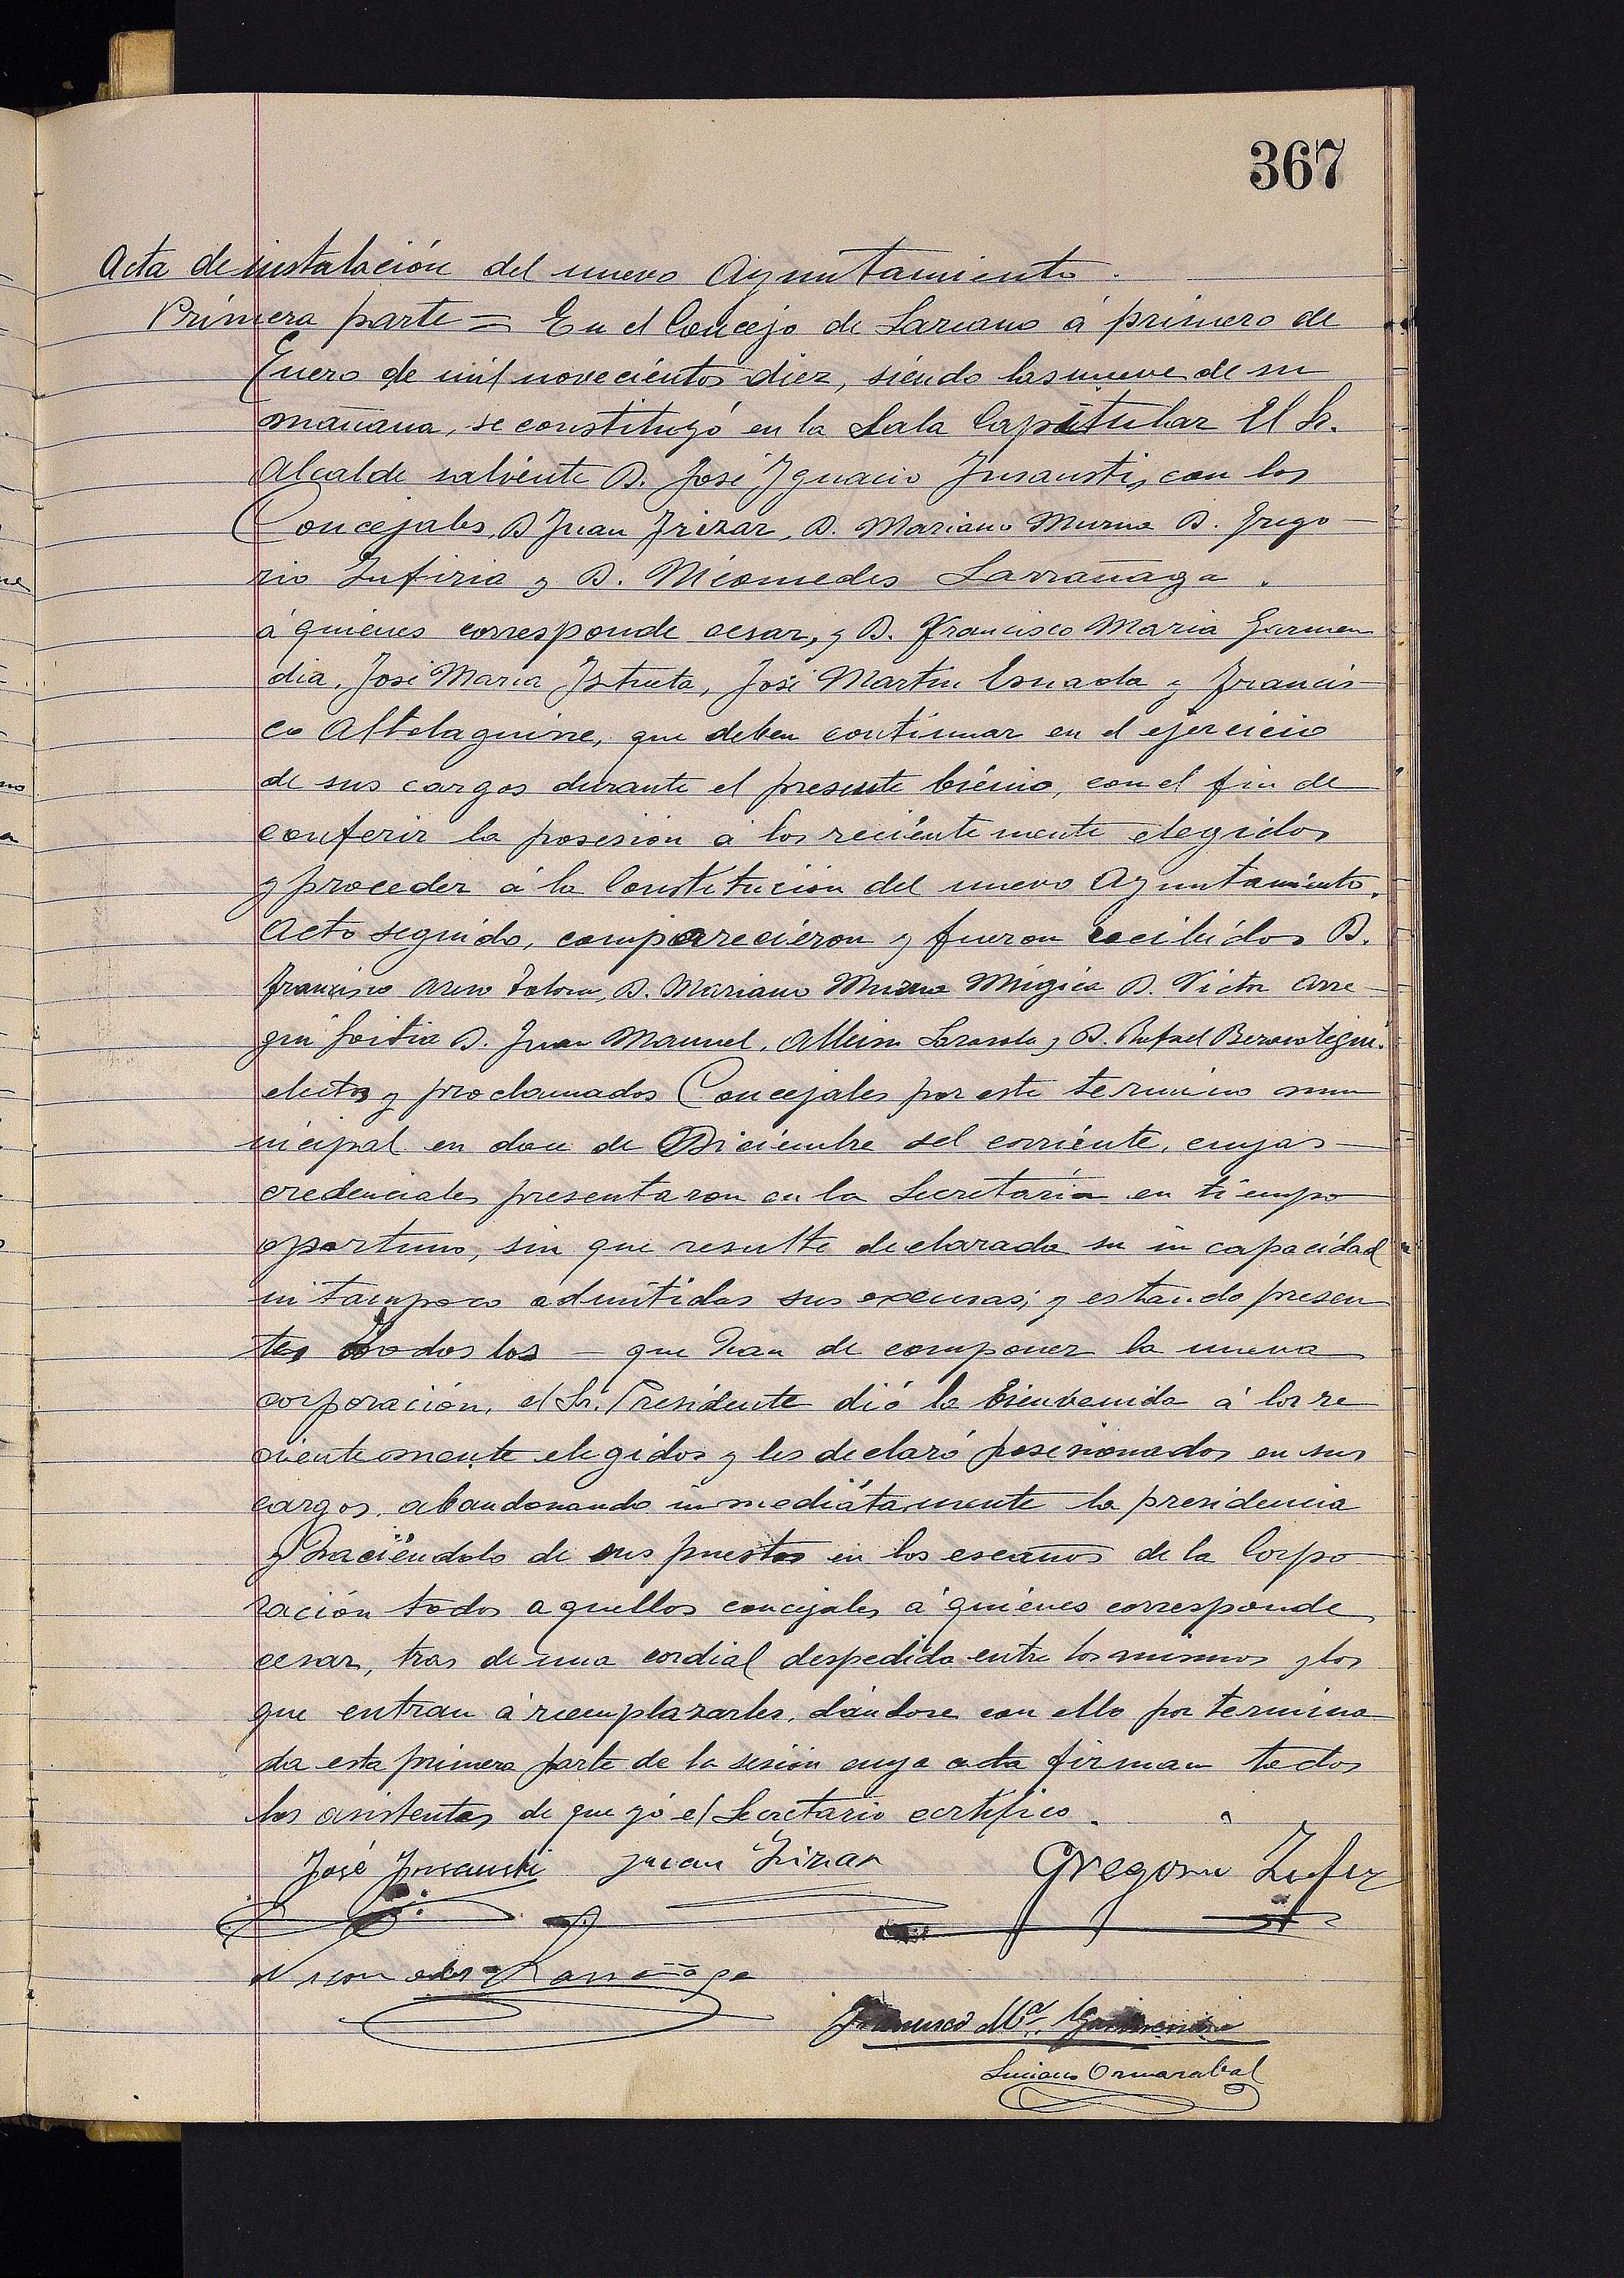 367
Acta de instalación del nuevo Ayuntamiento.
Primera parte = En el Concejo de Lazcano á primero de
Enero de mil novecientos diez, siendo las nueve de su
mañana, se constituyó en la Sala Capitular El Sr.
Alcalde saliente D. José Ignacio Insausti, con los
Concejales, D Juan Irizar, D. Mariano Murua D. Grego
rio Zufiria y D. Nicomedes Larrañaga.
á quienes corresponde cesar, y D. Francisco Maria Garmen
dia, José Maria Iztueta, José Martin Esnaola y Francis
co Altolaguirre, que deben continuar en el ejercicio
de sus cargos durante el presente biénio, con el fin de
conferir la posesión á los recientemente elegidos
y proceder á la Constitución del nuevo Ayuntamiento.
Acto seguido, comparecieron y fueron recibidos D.
Francisco D. Mariano Murua Múgica D. Victor Arre
gui Goitia D. Juan Manuel, Albisu Lasarte y D. Rafael Berasategui.
electos y proclamados Concejales por este termino mu
nicipal en doce de Diciembre del corriente, cuyas
credenciales presentaron en la Secretaría en tiempo
oportuno, sin que resulte declarada su incapacidad
ni tampoco admitidas sus excusas; y estando presen
tes todos los — que han de componer la nueva
corporación, el Sr. Presidente dió la bienvenida á los re
cientemente elegidos y les declaró posesionados en sus
cargos, abandonando inmediatamente la presidencia
y haciéndolo de sus puestos en los escaños de la Corpo
ración todos aquellos concejales á quienes corresponde
cesar, tras de una cordial despedida entre los mismos y los
que entran á reemplazarles, dándose con ello por termina
da esta primera parte de la sesión cuya acta firman todos
los asistentes de que yó el Secretario certifico.
José Insausti Juan Irizar Gregorio Zufiria
Nicomedes Larrañaga
Francisco Mª Garmendia
Luciano Ormazabal